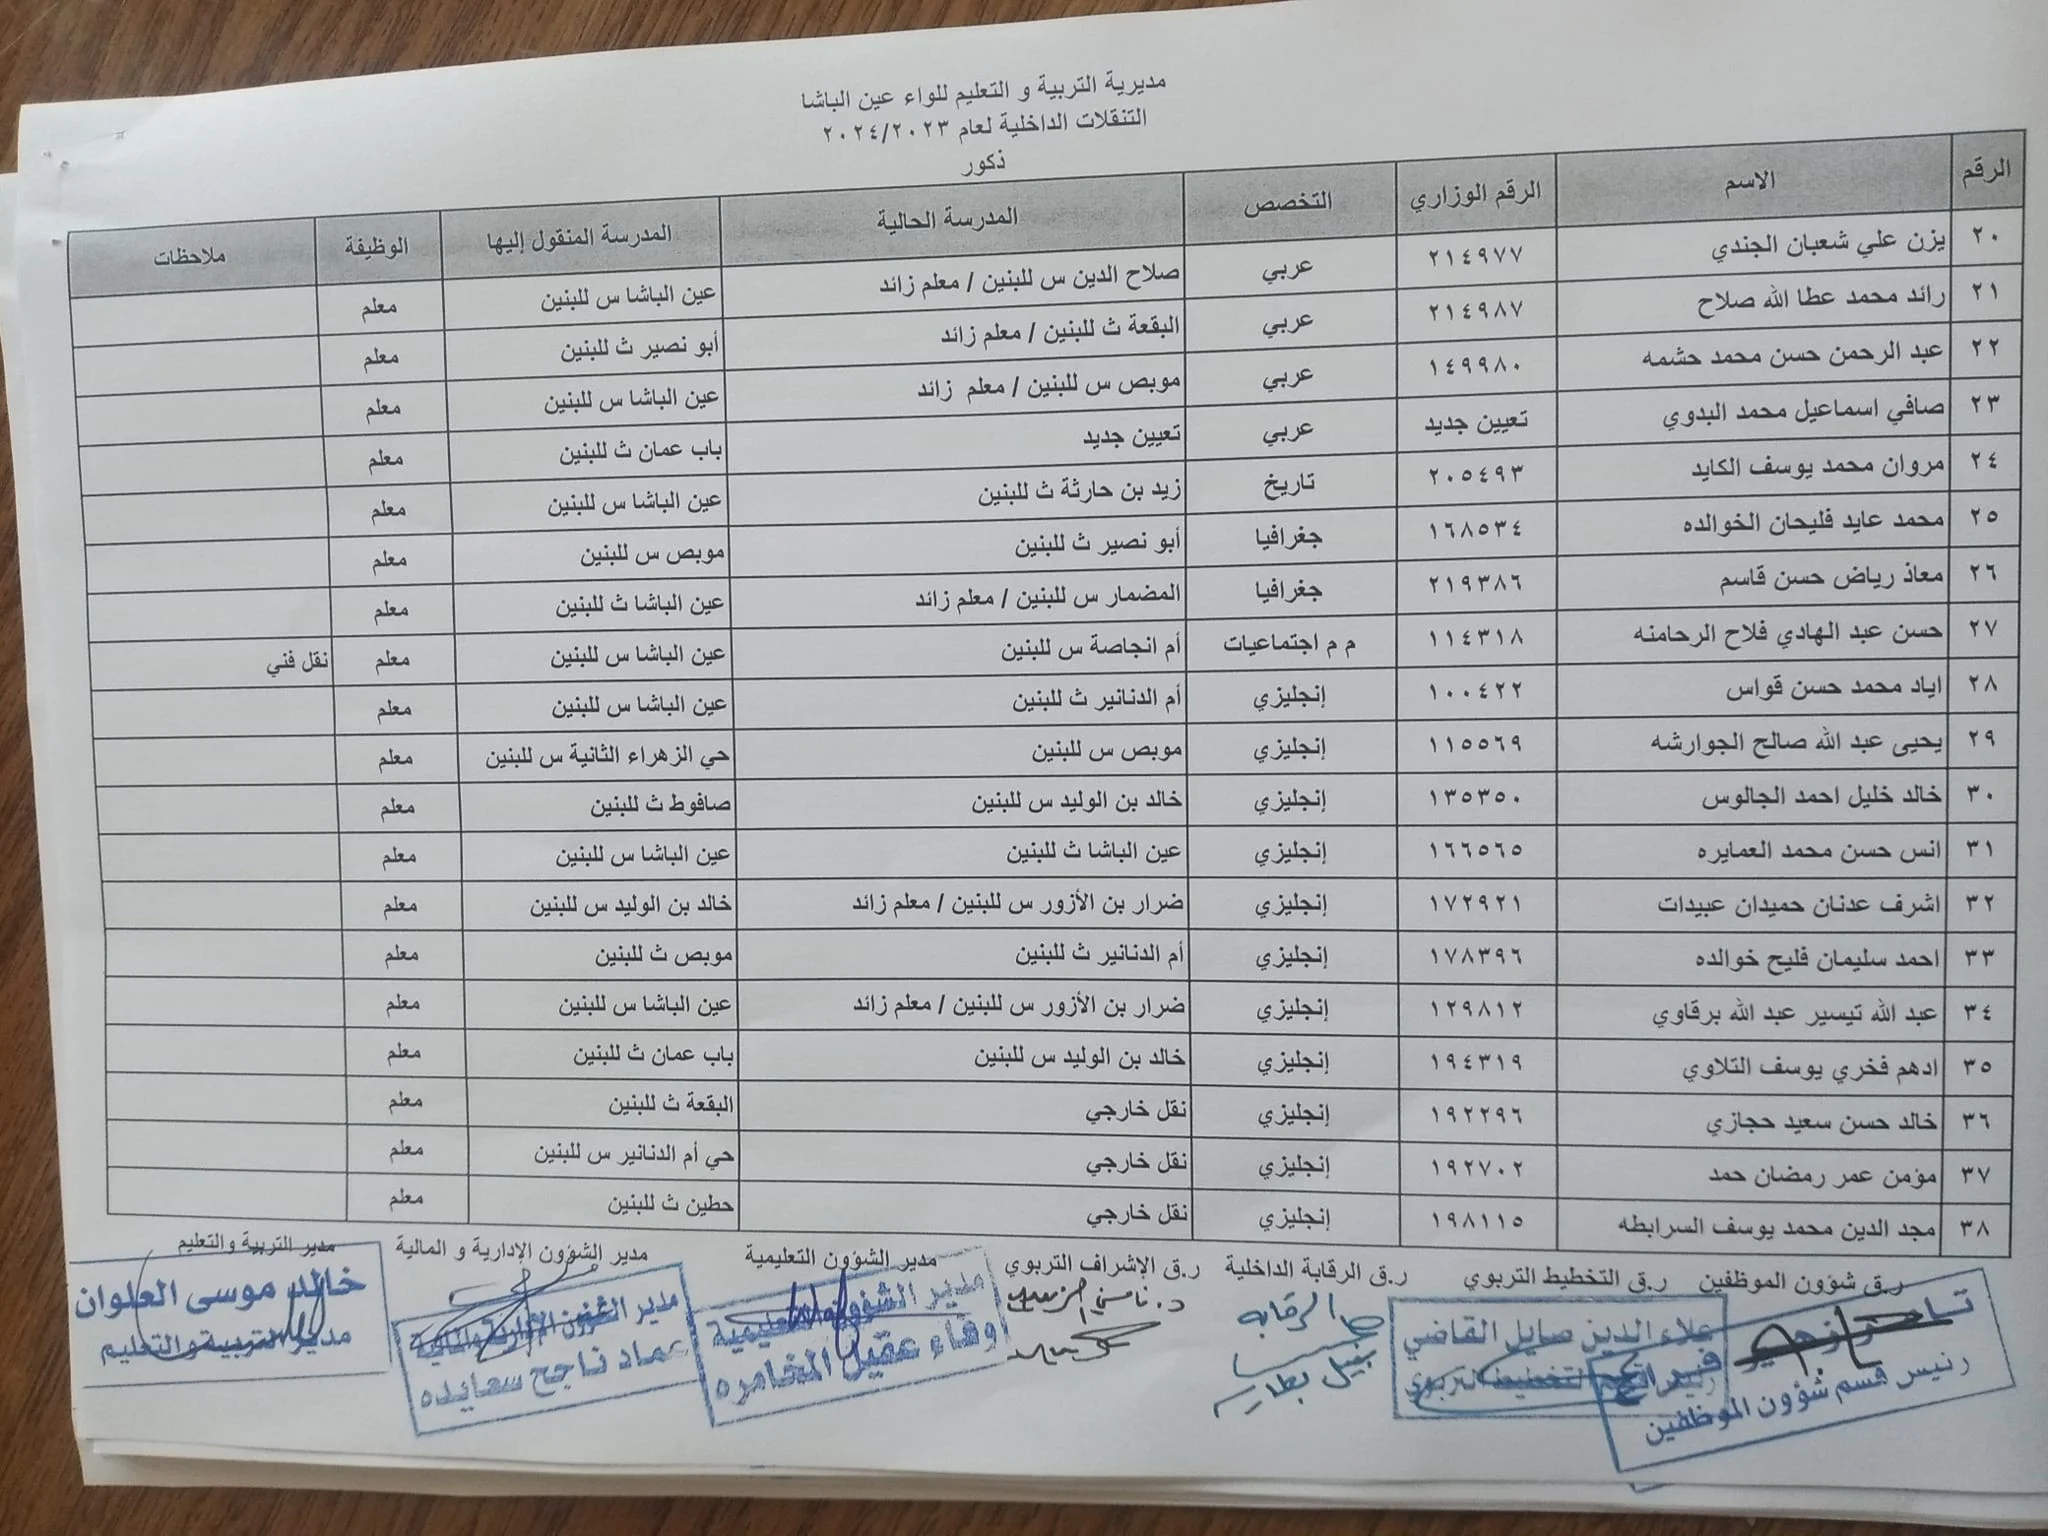 مديرية التربية و التعليم للواء عين الباشا
التنقلات الداخلية لعام ٢٠٢٤/٢٠٢٣
ذكور
الرقم الاسم الرقم الوزاري التخصص المدرسة الحالية المدرسة المنقول إليها الوظيفة ملاحظات
٢٠ يزن علي شعبان الجندي ٢١٤٩٧٧ عربي صلاح الدين س للبنين / معلم زائد عين الباشا س للبنين معلم
٢١ رائد محمد عطا الله صلاح ٢١٤٩٨٧ عربي البقعة ث للبنين / معلم زائد أبو نصير ث للبنين معلم
٢٢ عبد الرحمن حسن محمد حشمه ١٤٩٩٨٠ عربي موبص س للبنين / معلم زائد عين الباشا س للبنين معلم
٢٣ صافي اسماعيل محمد البدوي تعيين جديد عربي تعيين جديد باب عمان ث للبنين معلم
٢٤ مروان محمد يوسف الكايد ٢٠٥٤٩٣ تاريخ زيد بن حارثة ث للبنين عين الباشا س للبنين معلم
٢٥ محمد عايد فليحان الخوالده ١٦٨٥٣٤ جغرافيا أبو نصير ث للبنين موبص س للبنين معلم
٢٦ معاذ رياض حسن قاسم ٢١٩٣٨٦ جغرافيا المضمار س للبنين / معلم زائد عين الباشا ث للبنين معلم
٢٧ حسن عبد الهادي فلاح الرحامنه ١١٤٣١٨ م م اجتماعيات أم انجاصة س للبنين عين الباشا س للبنين معلم نقل فني
٢٨ اياد محمد حسن قواس ١٠٠٤٢٢ إنجليزي أم الدنانير ث للبنين عين الباشا س للبنين معلم
٢٩ يحيى عبد الله صالح الجوارشه ١١٥٥٦٩ إنجليزي موبص س للبنين حي الزهراء الثانية س للبنين معلم
٣٠ خالد خليل احمد الجالوس ١٣٥٣٥٠ إنجليزي خالد بن الوليد س للبنين صافوط ث للبنين معلم
٣١ انس حسن محمد العمايره ١٦٦٥٦٥ إنجليزي عين الباشا ث للبنين عين الباشا س للبنين معلم
٣٢ اشرف عدنان حميدان عبيدات ١٧٢٩٢١ إنجليزي ضرار بن الأزور س للبنين / معلم زائد خالد بن الوليد س للبنين معلم
٣٣ احمد سليمان فليح خوالده ١٧٨٣٩٦ إنجليزي أم الدنانير ث للبنين موبص ث للبنين معلم
٣٤ عبد الله تيسير عبد الله برقاوي ١٢٩٨١٢ إنجليزي ضرار بن الأزور س للبنين / معلم زائد عين الباشا س للبنين معلم
٣٥ ادهم فخري يوسف التلاوي ١٩٤٣١٩ إنجليزي خالد بن الوليد س للبنين باب عمان ث للبنين معلم
٣٦ خالد حسن سعيد حجازي ١٩٢٢٩٦ إنجليزي نقل خارجي البقعة ث للبنين معلم
٣٧ مؤمن عمر رمضان حمد ١٩٢٧٠٢ إنجليزي نقل خارجي حي أم الدنانير س للبنين معلم
٣٨ مجد الدين محمد يوسف السرابطه ١٩٨١١٥ إنجليزي نقل خارجي حطين ث للبنين معلم
ر.ق شؤون الموظفين ر.ق التخطيط التربوي ر.ق الرقابة الداخلية ر.ق الإشراف التربوي مدير الشؤون التعليمية مدير الشؤون الإدارية و المالية مدير التربية والتعليم
رئيس قسم شؤون الموظفين
علاء الدين صايل القاضي
رئيس قسم التخطيط التربوي
الرقابه
مدير الشؤون التعليمية
وفاء عقيل المخامره
مدير الشؤون الإدارية والمالية
عماد ناجح سعايده
خالد موسى العلوان
مدير التربية والتعليم